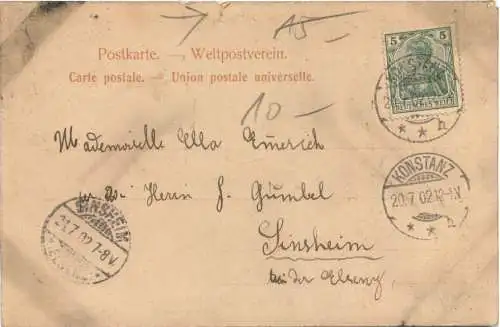 15-
Postkarte. — Weltpostverein.
Carte postale. — Union postale universelle.
5
DEUTSCHES REICH
KONSTANZ
10-
Mademoiselle Ella Emerich
Herrn J. Gumbel
Sinsheim
bei der Elsenz
KONSTANZ
20.7.02.12-1V
SINSHEIM
21.7.02.7-8V.